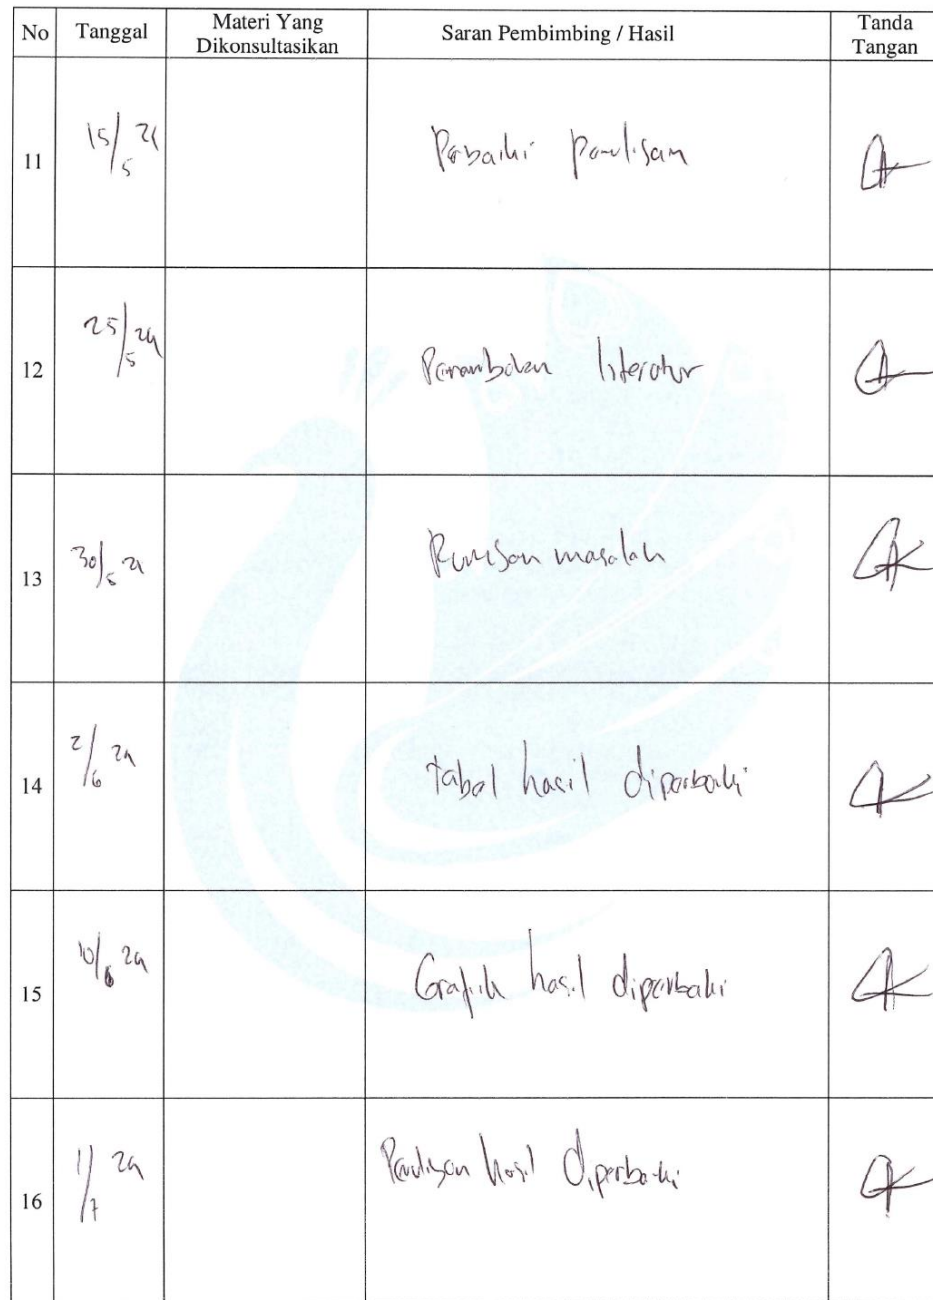 No Tanggal Materi Yang Dikonsultasikan Saran Pembimbing / Hasil Tanda Tangan
11 15/5 24 Perbaiki penulisan
12 25/5 24 Penambahan literatur
13 30/5 24 Rumusan masalah
14 2/6 24 tabel hasil diperbaiki
15 10/6 24 Grafik hasil diperbaiki
16 1/7 24 Penulisan hasil diperbaiki